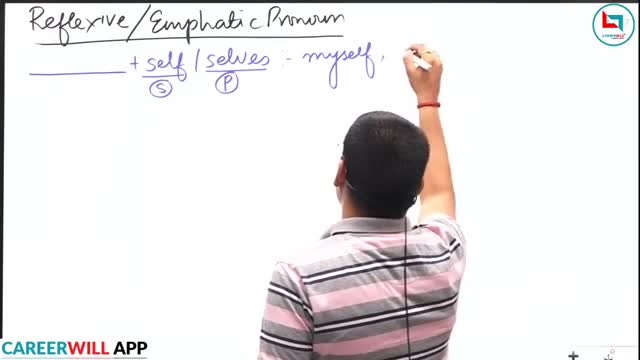 Reflexive/Emphatic Pronoun
______ + self / selves :- myself,
S P
CAREERWILL
CAREERWILL APP